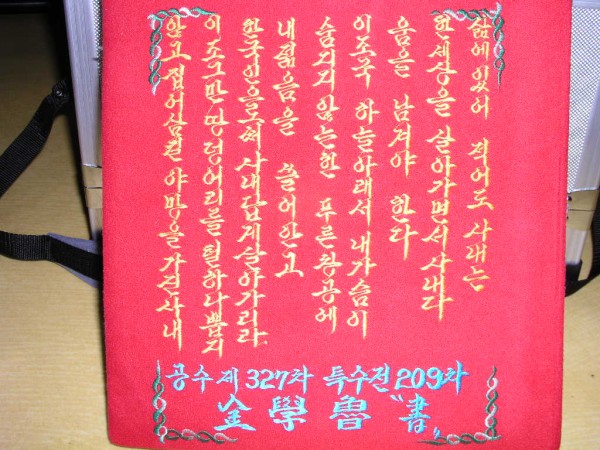 삶에있어 적어도 사내는
한세상을 살아가면서사내다
움을 남겨야 한다
이조국 하늘아래서 내가슴이
숨지지 않는한 푸른창공에
내젊음을 쓸어안고
한국인으로써 사내답게살아가리라
이조그만땅덩어리를 털하나뽑지
않고집어삼킬 야망을 가진사내
공수제327차 특수전209차
金學魯 〝書〟